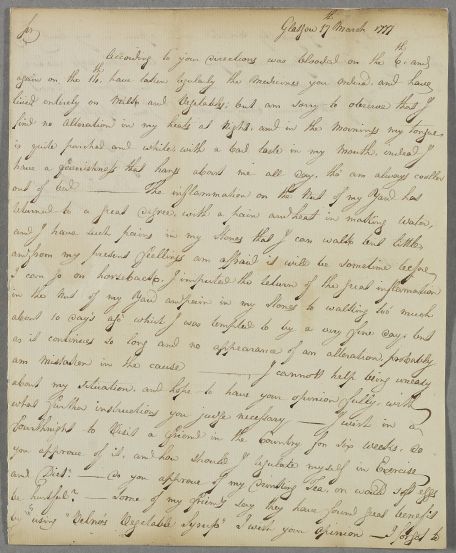 Sir
Glasgow 17th March 1777
According to your directions was blooded on the 6th and
again on the 14th, have taken regularly the Medicines you ordered, and have
lived entirely on Milk and Vegetables; but am sorry to observe that I
find no alteration in my heats at Night, and in the Mornings my tongue
is quite parched and white, with a bad taste in my mouth, indeed I
have a feverishness that hangs about me all day, tho' am always cooller
out of bed — The inflammation on the Nut of my Yard has
returned to a great degree, with a pain and heat in making Water,
and I have such pains in my Stones that I can walk but little
and from my present feelings am afraid it will be sometime before
I can go on horseback, I imputed the return of the great inflammation
in the Nut of my Yard and pain in my Stones to walking too much
about 10 days ago which I was tempted to by a very fine day, but
as it continues so long and no appearance of an alteration, probably
am mistaken in the cause — I cannott help being uneasy
about my situation, and hope to have your opinion fully, with
what further instructions you judge necessary — I wish in a
fourthnight to Visit a friend in the Country for six weeks, do
you approve of it, and how should I regulate myself in Exercise
and Diet? — do you approve of my drinking Tea, or would Soft eggs
be hurtful? — Some of my friends say they have found great benefit
by using "Velno's Vegetable Syrup" I wish your opinion — I forgot to